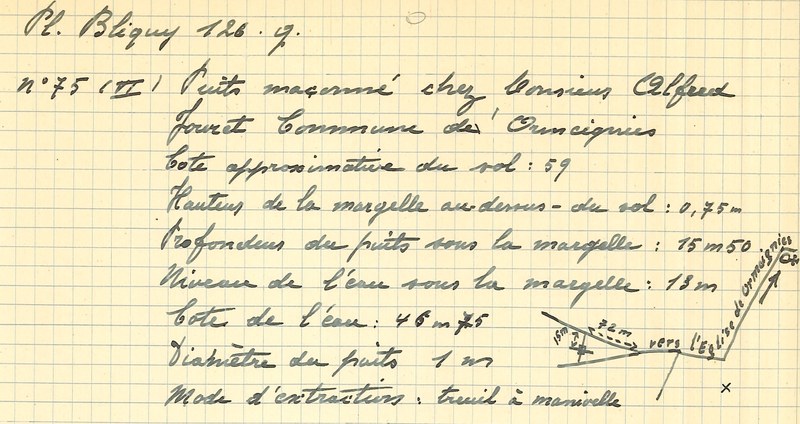 Pl. Bliquy 126. g.
N° 75 (VI) Puits maçonné chez Monsieur Alfred
Jouret Commune de Ormeignies
Cote approximative du sol : 59
Hauteur de la margelle au-dessus - du sol : 0,75 m
Profondeur du puits sous la margelle : 15 m 50
Niveau de l'eau sous la margelle : 13 m
Cote de l'eau : 46 m 75
Diamètre du puits 1 m
Mode d'extraction : treuil à manivelle
15m
72 m
vers l'Eglise de Ormeignies
x